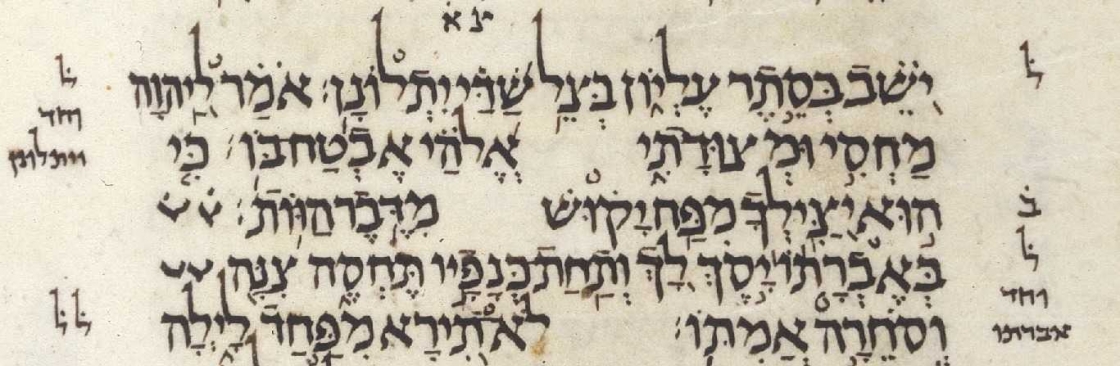 צא
יֹשֵׁב בְּסֵתֶר עֶלְיוֹן בְּצֵל שַׁדַּי יִתְלוֹנָן׃ אֹמַר לַיהוָה
מַחְסִי וּמְצוּדָתִי אֱלֹהַי אֶבְטַח בּוֹ׃ כִּי
הוּא יַצִּילְךָ מִפַּח יָקוּשׁ מִדֶּבֶר הַוּוֹת׃
בְּאֶבְרָתוֹ יָסֶךְ לָךְ וְתַחַת כְּנָפָיו תֶּחְסֶה צִנָּה
וְסֹחֵרָה אֲמִתּוֹ׃ לֹא תִירָא מִפַּחַד לָיְלָה
ל
ב
ל
וחד
אברתו
ל
וחד
ויתלונן
ל ל